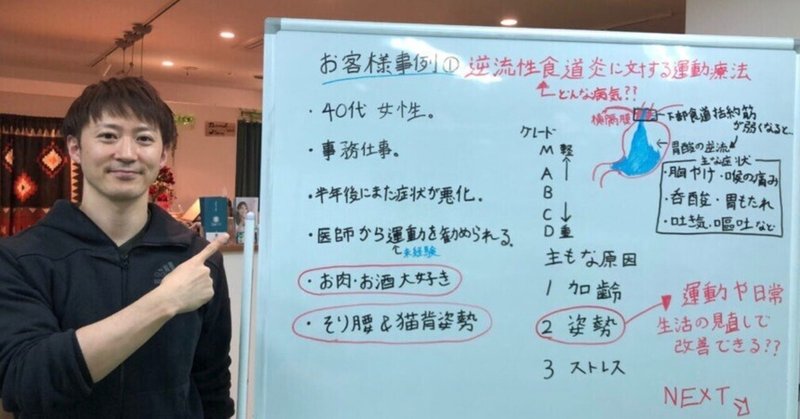 お客様事例① 逆流性食道炎に対する運動療法
どんな病気??
・40代 女性。
・事務仕事。
・半年後にまた症状が悪化。
・医師から運動を勧められる。
未経験
・お肉・お酒大好き
・そり腰&猫背姿勢
グレード
M 軽
A
B
C
D 重
横隔膜
下部食道括約筋
が弱くなると、
胃酸の逆流
主な症状
・胸やけ・喉の痛み
・呑酸・胃もたれ
・吐き気・嘔吐など
主もな原因
1 加齢
2 姿勢
3 ストレス
運動や日常
生活の見直しで
改善できる??
NEXT